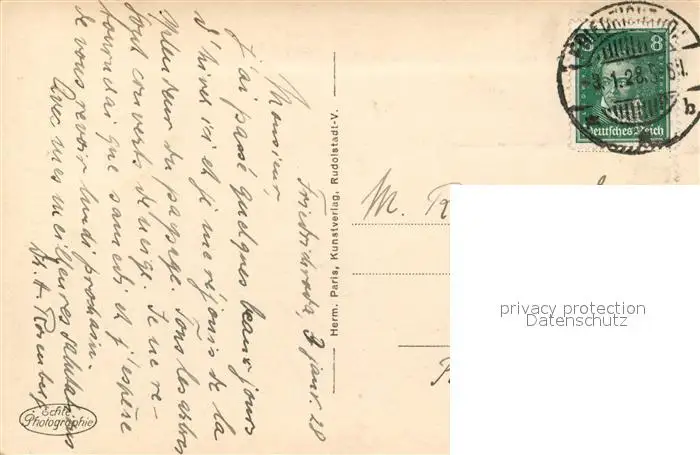 Friedrichroda, 3 janv. 28
Monsieur,
J'ai passé quelques beaux jours
d'hiver ici et je me réjouis de la
splendeur du paysage. Tous les arbres
sont couverts de neige. Je ne re-
tournerai que samedi et j'espère
de vous revoir lundi prochain.
Avec mes meilleures salutations
H. Rosenburg
Herm. Paris, Kunstverlag, Rudolstadt-V.
Echte
Photographie
8
Deutsches Reich
FRIEDRICHRODA
3.1.28.
b
M. R
privacy protection
Datenschutz